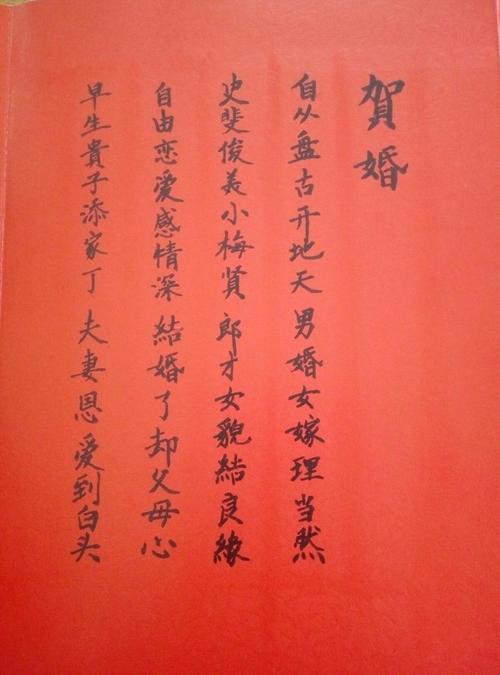 賀婚
自从盘古开地天 男婚女嫁理当然
史斐俊美小梅贤 郎才女貌結良緣
自由恋爱感情深 結婚了却父母心
早生貴子添家丁 夫妻恩爱到白头